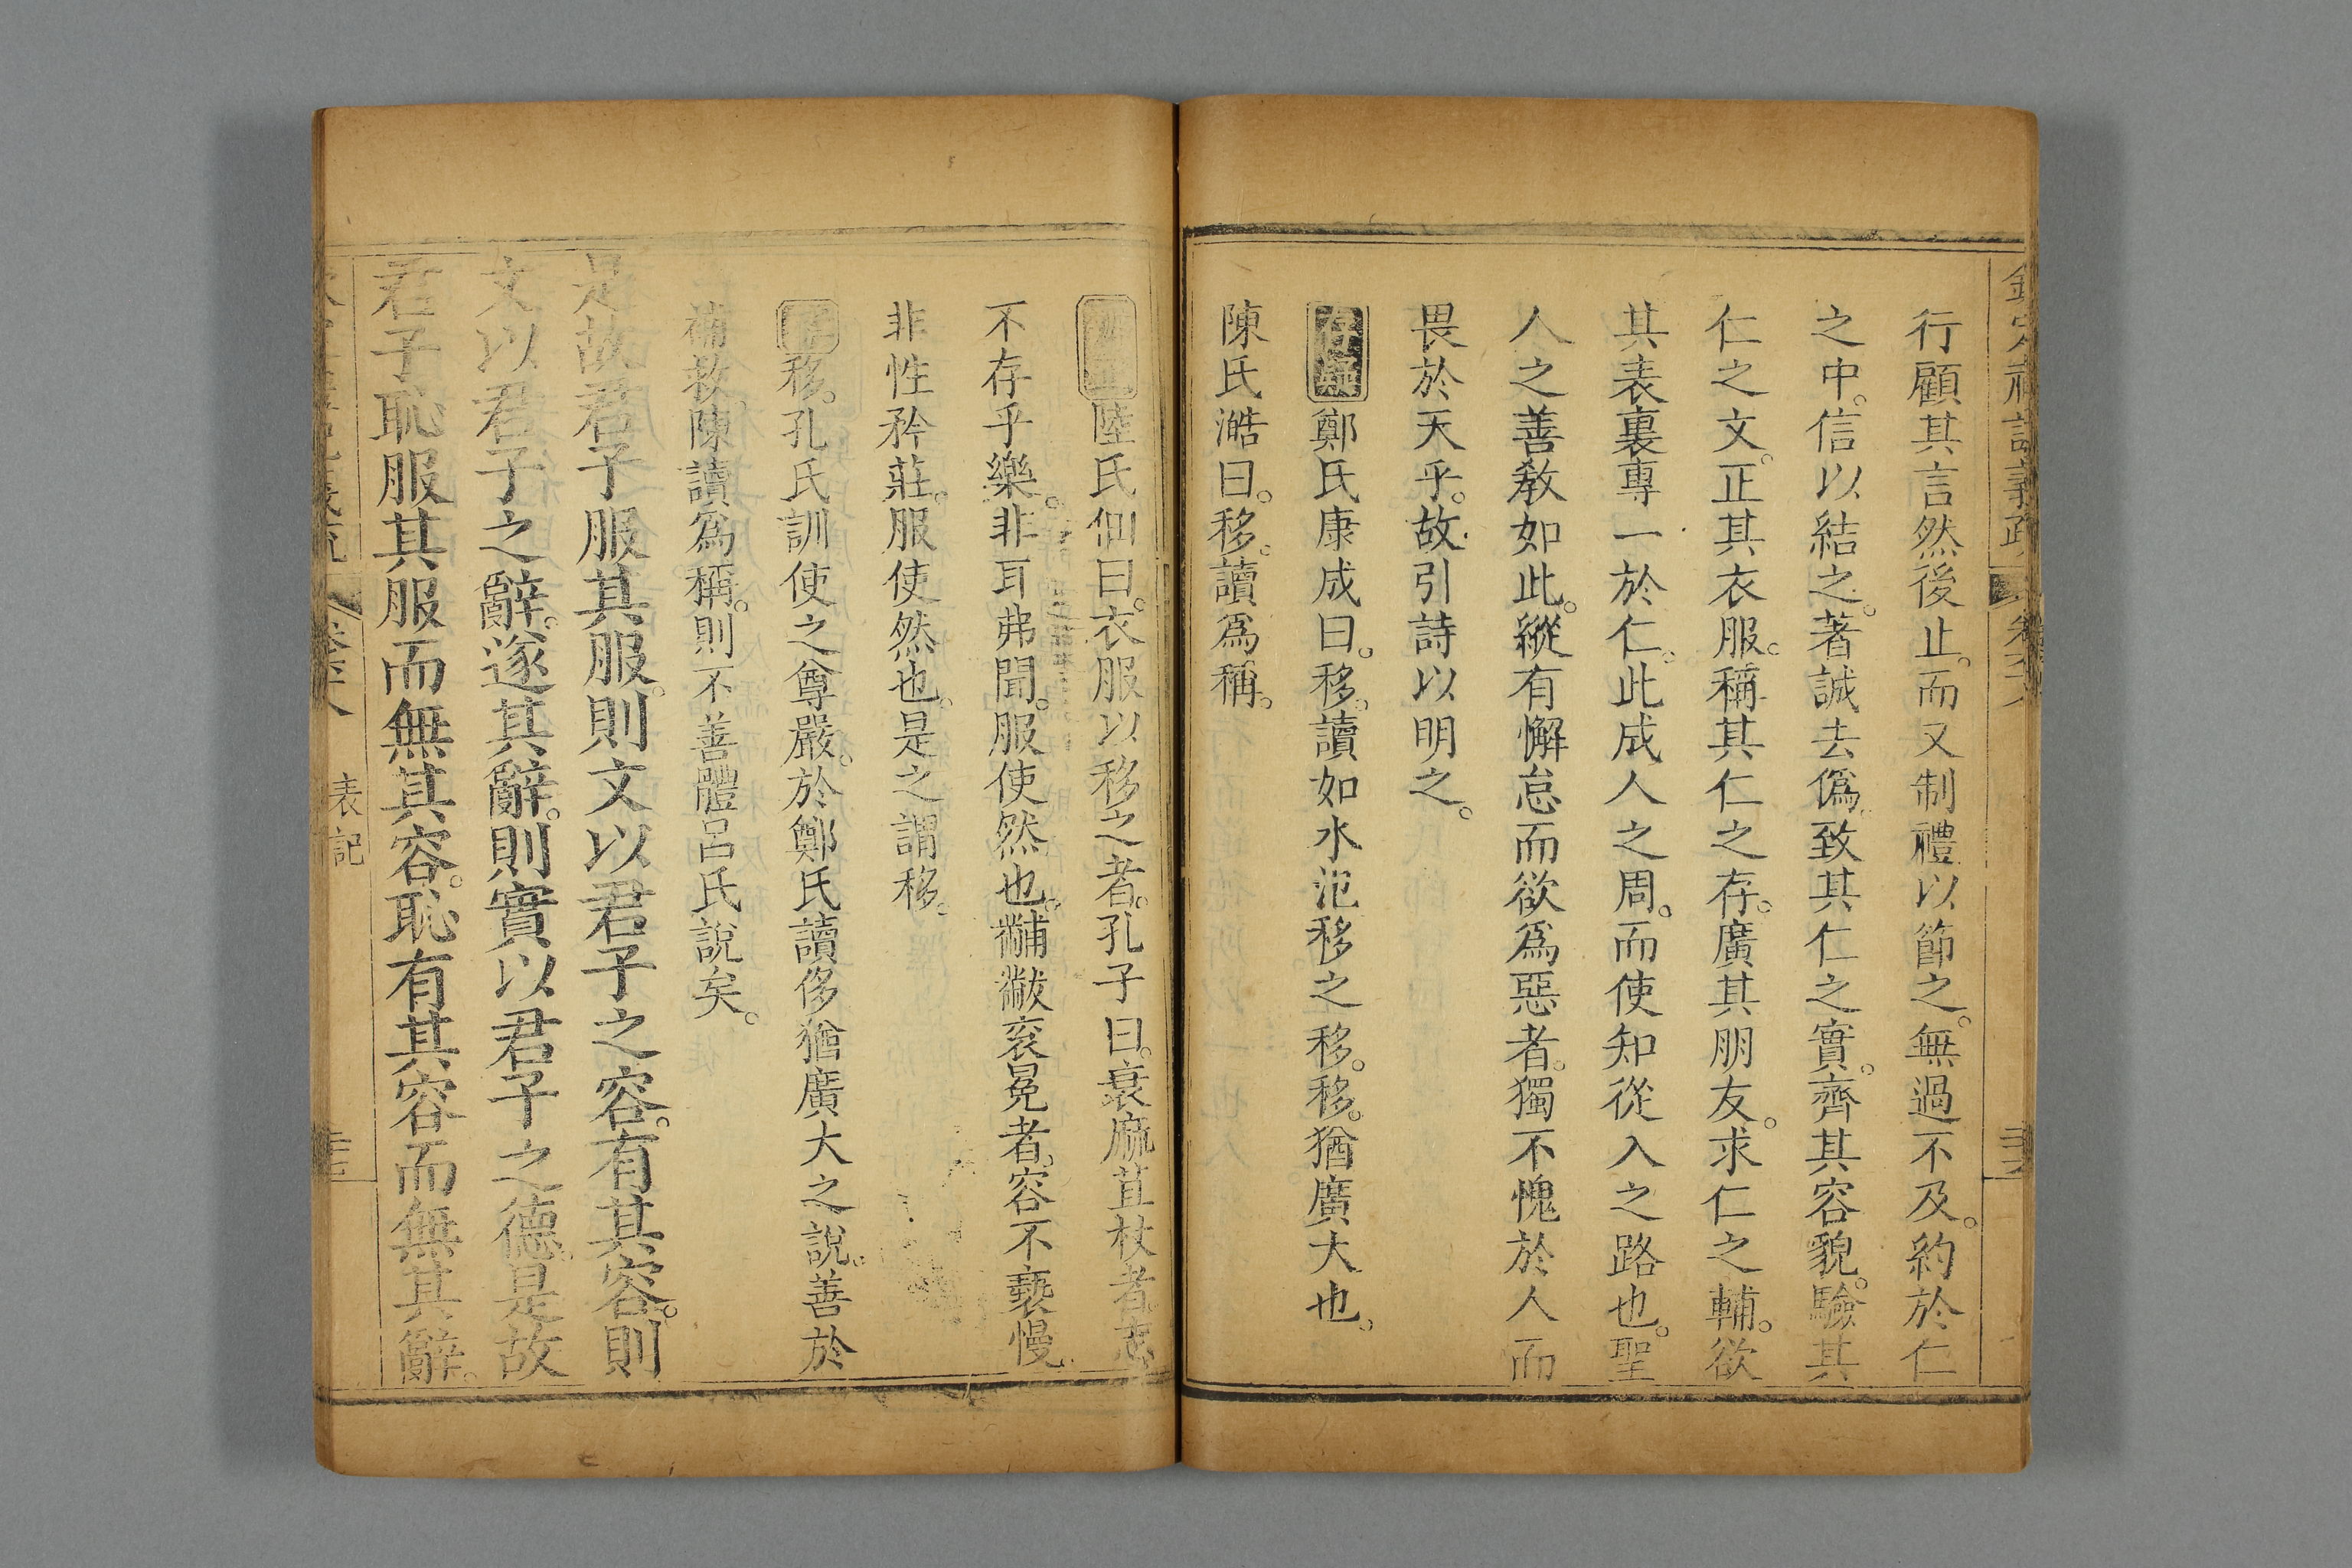 欽定禮記義疏 卷六八
行顧其言然後止。而又制禮以節之。無過不及。約於仁
之中。信以結之。著誠去僞。致其仁之實。齊其容貌。驗其
仁之文。正其衣服。稱其仁之存。廣其朋友。求仁之輔。欲
其表裏專一於仁。此成人之周。而使知從入之路也。聖
人之善教如此。縱有懈怠而欲爲惡者。獨不愧於人而
畏於天乎。故引詩以明之。
存疑 鄭氏康成曰。移。讀如水汜移之移。移。猶廣大也。
陳氏澔曰。移。讀爲稱。
陸氏佃曰。衣服以移之者。孔子曰。衰麻苴杖者。志
不存乎樂。非耳弗聞。服使然也。黼黻袞冕者。容不褻慢。
非性矜莊。服使然也。是之謂移。
移。孔氏訓使之尊嚴。於鄭氏讀侈猶廣大之說。善於
補救。陳讀爲稱。則不善體呂氏說矣。
是故君子服其服。則文以君子之容。有其容。則
文以君子之辭。遂其辭。則實以君子之德。是故
君子恥服其服而無其容。恥有其容而無其辭。
表記